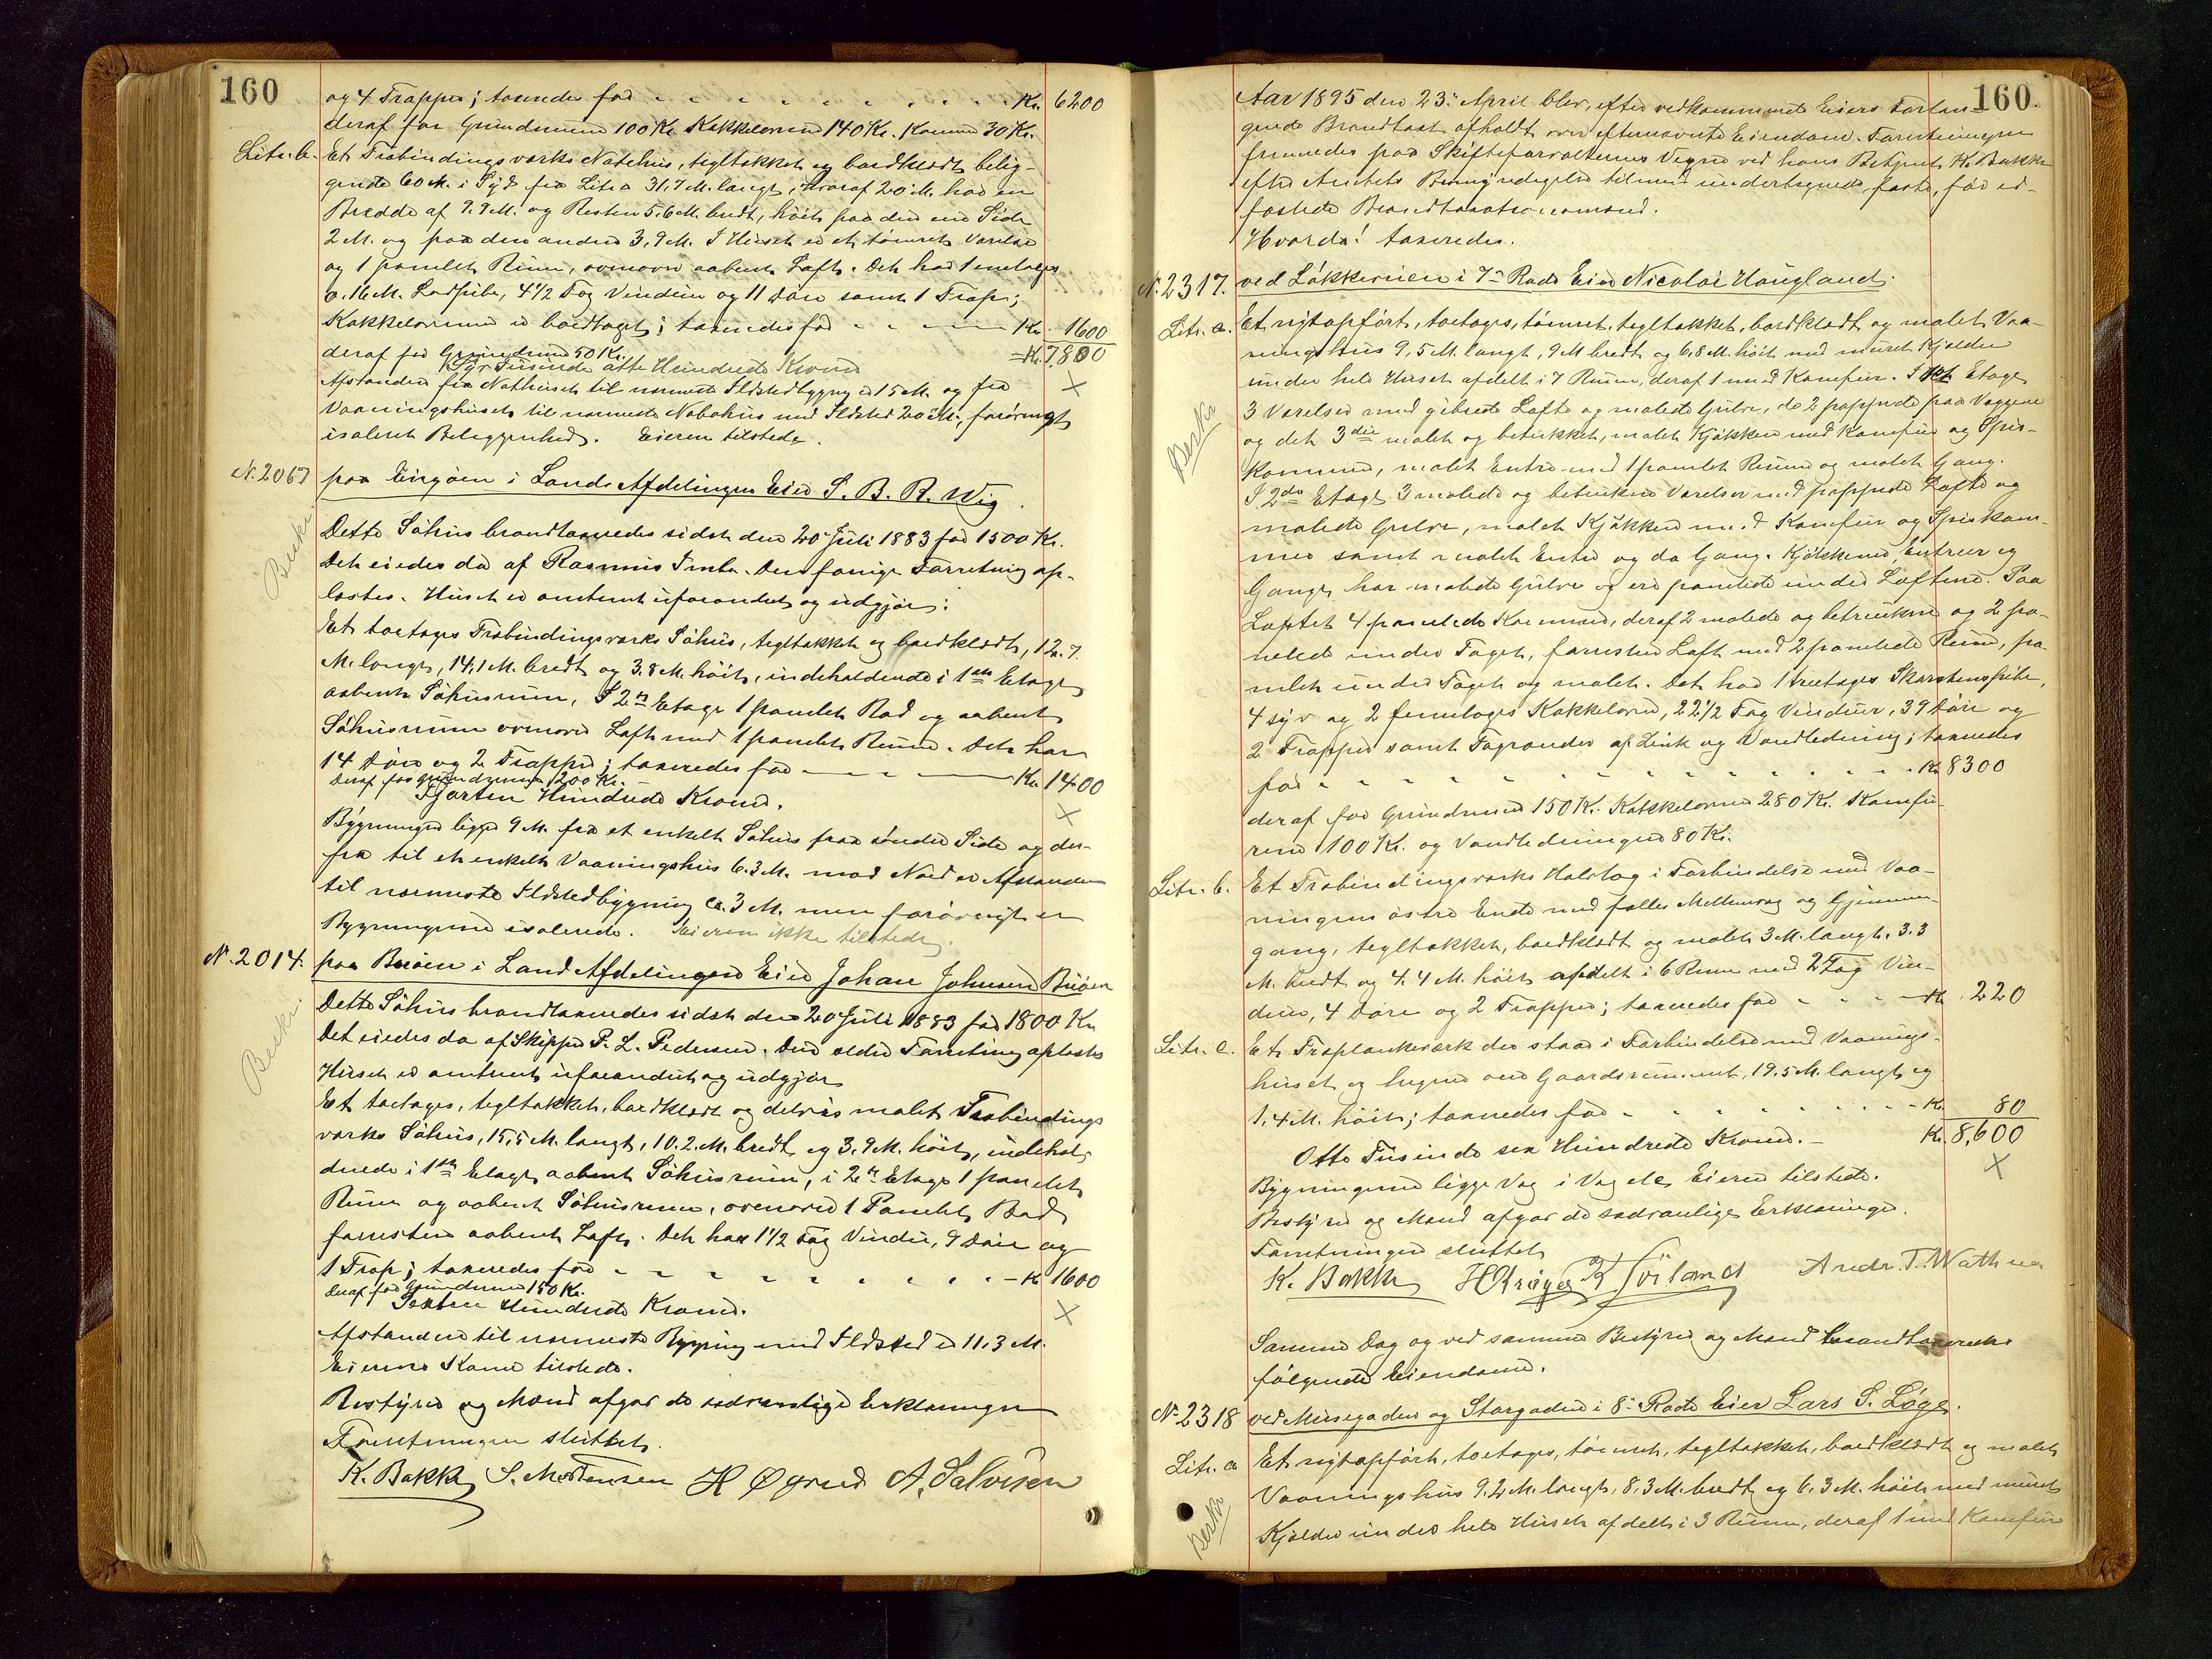 160
og 4 Trapper; taxeredes for - - - - - - - - - - Kr. 6200
deraf for Grundmuren 100 Kr. Kakkelovnene 140 Kr. Komfur 30 Kr.
Litr. b. Et Træbindingsværks Nothus, tegltækket og bordklædt belig-
gende 60 M. i Syd fra Litr. a 31,7 M. langt, hvoraf 20 M. har en
Bredde af 9.9 M. og Resten 5,6 M. bredt, høit paa den ene Side
2 M. og paa den anden 3,9 M. I Huset er et tømret Værelse
og 1 panelet Rum, ovenover aabent Loft. Det har 1 enetages
0.16 M. Lodpibe, 4 1/2 Fag Vinduer og 11 Døre samt 1 Trap;
Kakkelovnene er borttaget; taxeredes for - - - - Kr. 1600
deraf for Grundmur 50 Kr. = Kr. 7,800
Syv Tusinde otte Hundrede Kroner
Afstanden fra Nothuset til nærmeste Ildstedbygng er 15 M. og fra
Vaaningshuset til nærmeste Nabohus med Ildsted 20 M., forøvrigt
isoleret Beliggenhed. Eieren tilstede.
N. 2067 paa Engøen i Lands Afdelingen Eier S. B. R. Wig.
Beskr.
Dette Søhus brandtaxeredes sidst den 20 Juli 1883 for 1500 Kr.
Det eiedes da af Rasmus . Den forrige Forretning op-
læstes. Huset er omtrent uforandret og udgjør:
Et toetages Træbindingsværks Søhus, tegltækket og bordklædt, 12.7.
M. langt, 14,1 M. bredt og 3.8 M. høit, indeholdende i 1ste Etage
aabent Søhusrum, I 2n Etage 1 panelet Bod og aabent
Søhusrum ovenover Loft med 1 panelet Rum. Det har
14 Døre og 2 Trapper; taxeredes for - - - - Kr. 1400
Deraf for Grundmuren 200 Kr.
Fjorten Hundrede Kroner.
Bygningen ligger 9 M. fra et enkelt Søhus paa søndre Side og der-
fra til et enkelt Vaaningshus 6.3 M. mod Nord er Afstanden
til nærmeste Ildstedbygning ca. 3 M. men forøvrigt er
Bygningerne isolerede. Eieren ikke tilstede.
N. 2014. paa Buøen i Land Afdelingen Eier Johan Johnsen Buøen
Beskr.
Dette Søhus brandtaxeredes sidst den 20 Juli 1883 for 1800 Kr.
Det eiedes da af Skipper P. L. Pedersen. Den ældre Forretning oplæstes
Huset er omtrent uforandret og udgjør
Et toetages, tegltækket, bordklædt og delvis malet Træbindings
værks Søhus, 15,5 M. langt, 10.2. M. bredt og 3.9 M. høit, indehol-
dende i 1ste Etage aabent Søhusrum, i 2n Etage 1 panelet
Rum og aabent Søhusrum, ovenover 1 Panelet Bod
forresten aabent Loft. Det har 1 1/2 Fag Vindu, 9 Døre og
1 Trap; taxeredes for - - - - - - - - - Kr. 1600
Deraf for Grundmuren 150 Kr.
Sexten Hundrede Kroner.
Afstanden til nærmeste Bygning med Ildsted er 11.3 M.
Eierens Kone tilstede.
Bestyrer og Mænd afgav de sædvanlige Erklæringer
Forretningen sluttet.
K. Bakke S. Mortensen H Øgreid A. Salvesen
160.
Aar 1895 den 23. April blev, efter vedkommende Eiers Forlan-
gende Brandtaxt afholdt over efternævnte Eiendom. Forretningen
fremmedes paa Skifteforvalterens Vegne ved hans Betjent K. Bakke
efter Amtets Bemyndigelse tilmed undertegnede, faste, før ed-
fæstede Brandtaxationsmænd.
Hvorda! taxeredes.
N. 2317. ved Løkkeveien i 7de Rode Eier Nicolai Haugland.
Beskr.
Litr. a. Et nyopført, toetages, tømret, tegltækket, bordklædt og malet Vaa-
ningshus 9,5 M. langt, 9 M bredt og 6,8 M. høit med muret Kjelder
under hele Huset afdelt i 7 Rum, deraf 1 med Komfur. I 1ste Etage
3 Værelser med gibsede Lofte og malede Gulve, de 2 pappede paa Væggene
og det 3die malet og betrukket, malet Kjøkken med Komfur og Spis-
kammer, malet Entre med 1 panelet Rum og malet Gang.
I 2den Etage 3 malede og betrukne Værelser med pappede Lofte og
malede Gulve, malet Kjøkken med Komfur og Spiskam-
mer samt malet Entre og do Gang. Kjøkkener Entreer og
Gange har malede Gulve og ere panelede under Loftene. Paa
Loftet 4 panelede Kammere, deraf 2 malede og betrukne og 2 pa-
nelede under Taget, forresten Loft med 2 panelede Rum, pa-
nelet under Taget og malet. Det har 1 treetages Skorstenspibe,
4 syv og 2 femetages Kakkelovne, 22 1/2 Fag Vinduer, 39 Døre og
2 Trapper samt Tagrender af Zink og Vandledning; taxeredes
for - - - - - - - - - - - - - Kr. 8300
deraf for Grundmuren 150 Kr. Kakkelovnene 280 Kr. Komfu-
rene 100 Kr. og Vandledningen 80 Kr.
Litr. b. Et Træbindingsværks Halvtag i Forbindelse med Vaa-
ningens østre Ende med fælles Mellemvæg og Gjennem-
gang, tegltækket, bordklædt og malet 3 M. langt, 3.3
M. bredt og 4.4 M. høit afdelt i 6 Rum med 2 Fag Vin-
duer, 4 Døre og 2 Trapper; taxeredes for - - - - Kr. 220
Litr. c. Et Træplankeværk der staar i Forbindelse med Vaanings-
huset og hegner om Gaardsrummet, 19.5 M. langt og
1,4 M. høit; taxeredes for - - - - - - - - - Kr. 80
Otte Tusinde sex Hundrede Kroner. - Kr. 8,600
Bygningerne ligger Væg i Væg Eieren tilstede.
Bestyrer og Mænd afgav de sædvanlige Erklæringer.
Forretningen sluttet
K. Bakke H Krøger Andr. T. Wathne
Samme Dag og ved samme Bestyrer og Mænd brandtaxeredes
følgende Eiendom.
N. 2318 ved Musegaden og Storgaden i 8de Rode Eier Lars S. Løge.
Litr. a Et nyopført, toetages, tømret, tegltækket, bordklædt og malet
Vaaningshus 9.2 M. langt, 8,3 M. bredt og 6.3 M. høit med muret
Beskr
Kjelder under hele Huset afdelt i 3 Rum, deraf 1 med Komfur